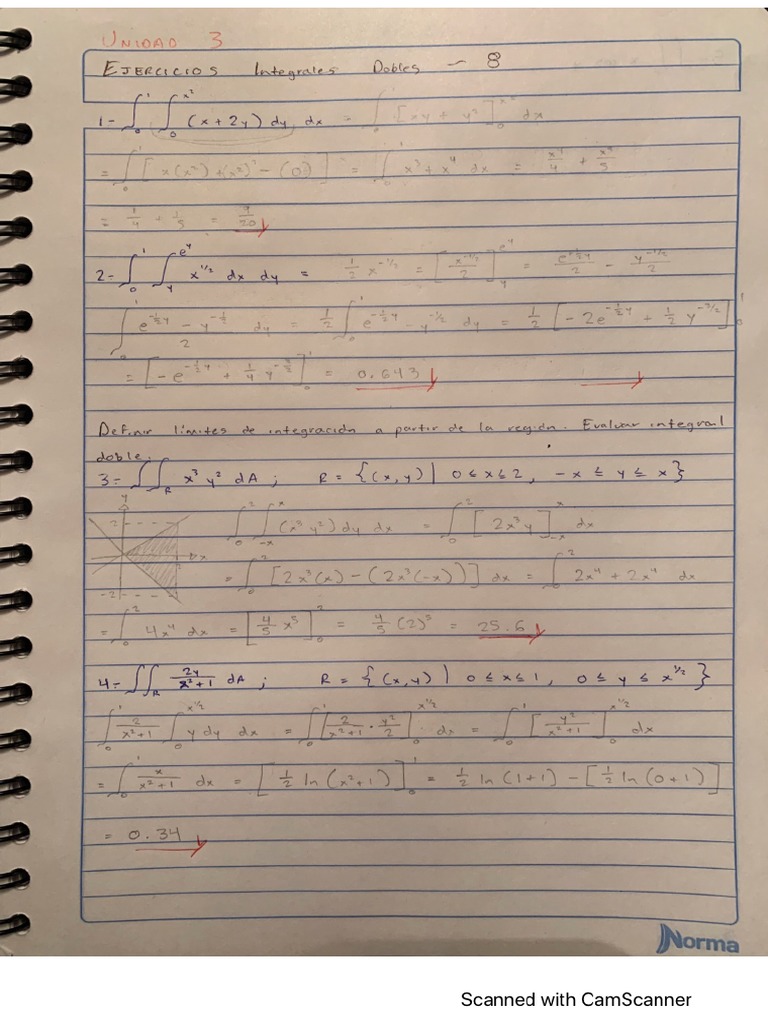 UNIDAD 3
EJERCICIOS Integrales Dobles - 8
1- ∫₀¹ ∫₀^(x²) (x + 2y) dy dx = ∫₀¹ [xy + y²]₀^(x²) dx
= ∫₀¹ [x(x²) + (x²)² - (0)] = ∫₀¹ x³ + x⁴ dx = x⁴/4 + x⁵/5
= 1/4 + 1/5 = 9/20
2- ∫₀¹ ∫_y^(e^y) x^(1/2) dx dy = 1/2 x^(-1/2) = [x^(-1/2)/2]_y^(e^y) = e^(-1/2 y)/2 - y^(-1/2)/2
∫₀¹ (e^(-1/2 y) - y^(-1/2))/2 dy = 1/2 ∫₀¹ e^(-1/2 y) - y^(-1/2) dy = 1/2 [-2e^(-1/2 y) + 1/2 y^(-3/2)]₀¹
= [-e^(-1/2 y) + 1/4 y^(-3/2)]₀¹ = 0.643
Definir límites de integración a partir de la región. Evaluar integral
doble.
3- ∫∫_R x³ y² dA ; R = {(x,y) | 0 ≤ x ≤ 2, -x ≤ y ≤ x}
y
2
x
-2
∫₀² ∫_(-x)^x (x³y²) dy dx = ∫₀² [2x³y]_(-x)^x dx
= ∫₀² [2x³(x) - (2x³(-x))] dx = ∫₀² 2x⁴ + 2x⁴ dx
= ∫₀² 4x⁴ dx = [4/5 x⁵]₀² = 4/5 (2)⁵ = 25.6
4- ∫∫_R 2y/(x²+1) dA ; R = {(x,y) | 0 ≤ x ≤ 1, 0 ≤ y ≤ x^(1/2)}
∫₀¹ 2/(x²+1) ∫₀^(x^(1/2)) y dy dx = ∫₀¹ [2/(x²+1) · y²/2]₀^(x^(1/2)) dx = ∫₀¹ [y²/(x²+1)]₀^(x^(1/2)) dx
= ∫₀¹ x/(x²+1) dx = [1/2 ln(x²+1)]₀¹ = 1/2 ln(1+1) - [1/2 ln(0+1)]
= 0.34
Norma
Scanned with CamScanner